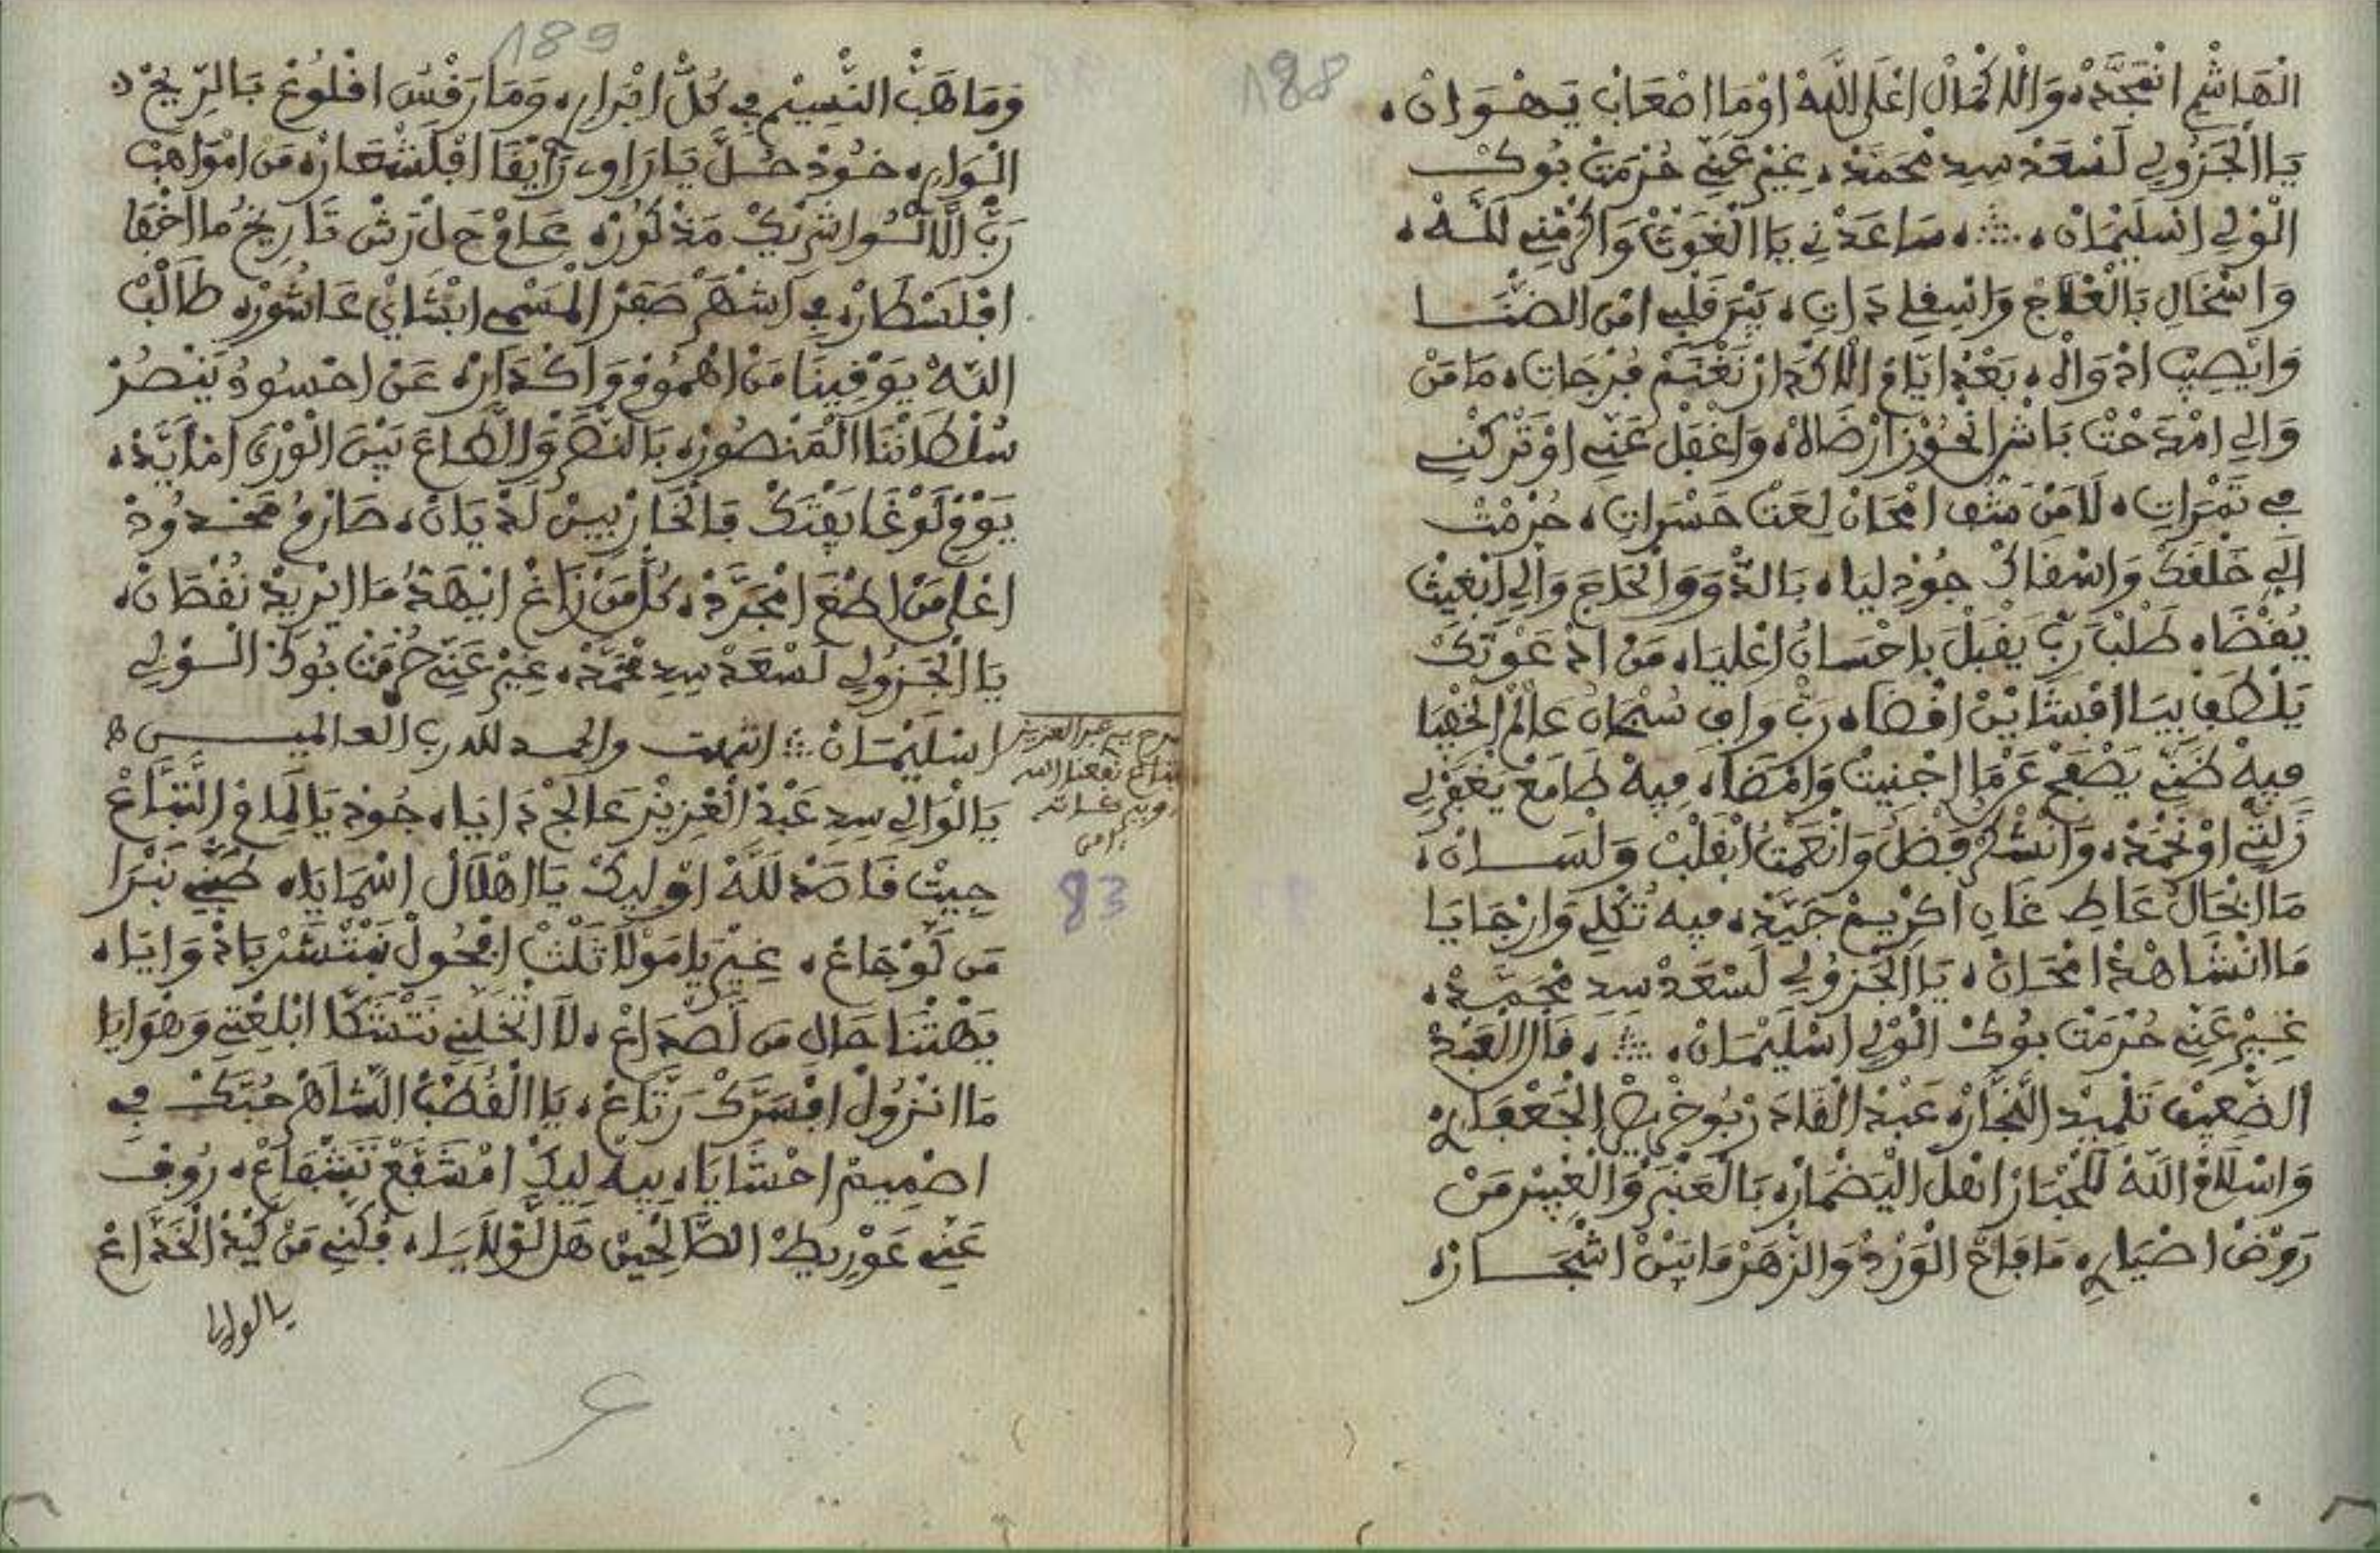 188
الْهَاشْمِ انْمَجَّدْ، وَالْاكْمَالْ اعْلَى اللَّهْ اوْمَا اصْعَابْ يَهْوَانْ،
يَا الْجَزُولِي لَسْعَدْ سِيدِ مُحَمَّدْ، غِيرْ عَنِّي حُرْمَتْ بُوكْ
الْوَلِي اسْلِيْمَانْ، سَاعَدْنِي يَا الْغَوْثْ وَاكْرَمْنِي لَلَّهْ،
وَاسْخَالِ بَالْعْلَاجْ وَاسْفِي دَاتِ، يَبْرَ قَلْبِي امْنْ الضْنَا
وَايْصِيبْ ادْوَاهْ، بَعْدْ ايَّامْ الَاكْدَارْ نَغْنَمْ فُرْجَاتِ، مَا مَنْ
وَالِي امْدَحْتْ بَاشْ انْحُوزْ ارْضَاهْ، وَاغْفَلْ عَنِّي اوْتَرْكْنِي
فِي تَمْرَاتِ، لَا مَنْ شَفْ امْحَانْ لِعَتْ حَسْرَاتِ، حُرْمْتْ
الِّي خَلْقَكْ وَاسْقَاكْ جُودْ لِيَا، بَالدْوَ وَالْحَاجَ وَالِي ابْغِيتْ
يُقْضَا، طَلْبْ رَبِّ يَقْبَلْ بِاحْسَانُ اعْلِيَا، مَنْ ادْعَوْتَكْ
يَلْطَفْ بِيَا افْشَايَنْ اقْضَا، رَبِّ وَافِ سُبْحَانْ عَالَمْ الْخْفِيَا
فِيهْ ظَنِّي يَصْفَحْ عَمَّا اجْنِيتْ وَامْضَا، فِيهْ طَامَعْ يَغْفَرْ لِي
زَلْتِي اوْنَحْمَدْ، وَانْشْكَرْ فَضْلَ وَانْعَمْتُ ابْقَلْبْ وَلْسَانْ،
مَا ابْحَالُ عَاطِ غَانِ اكْرِيمْ جَيَّدْ، فِيهْ تُكْلِي وَارْجَايَا
مَا انْشَاهَدْ امْحَانْ، يَا الْجَزُولِي لَسْعَدْ سِيدِ مُحَمَّدْ،
غِيرْ عَنِّي حُرْمَتْ بُوكْ الْوَلِي اسْلِيْمَانْ، قَالْ الْعَبْدْ
الضْعِيفْ تَلْمِيدْ النَّجَّارْ، عَبْدْ الْقَادَرْ بُوخْرِيصْ الْجَعْفَرِي،
وَاسْلَامْ اللَّهْ لَلْحْبَارْ اهْلْ الْيَضْمَارْ، بَالْعَنْبَرْ وَالْغْبِيرْ مَنْ
رَوْضْ اضْيَارِ، مَا فَاحْ الْوَرْدْ وَالزْهَرْ مَا بَيْنْ اشْجَارْ،
189
وَمَا هَبْ النْسِيمْ فِي كُلْ ابْرَارِ، وَمَا رَفْسْ افْلُوعْ بَالرِّيحْ
الْوَارِ، خُودْ حُلَّ يَا رَاوِي رَايْقَا افْلَشْعَارْ، مَنْ امْوَاهَبْ
رَبِّ الَّا لُسُواشْرِيكْ مَدْكُورْ، عَامْ حَلْ رَشْ تَارِيخُ مَا اخْفَا
افْلَسْطَارْ، فِي اشْهَرْ صَفَرْ الْمَسْمِي ابْشَايْ عَاشُورْ، طَالَبْ
اللَّهْ يَوْقِينَا مَنْ اهْمُومْ وَاكْدَارْ، عَنْ احْسُودُ يَنْصُرْ
سُلْطَانْنَا الْمَنْصُورْ، بَالنَّصْرْ وَالطَّاعَ بَيْنْ الْوْرَى امْأَيَّدْ،
يَوْمْ لَوْغَا يَفْتَكْ فَالْحَارْبِينْ لَدْيَانْ، صَارَمُ مَحْدُودْ
اعْلَى مَنْ اطْغَ امْجَرَّدْ، كُلْ مَنْ زَاغْ ايْهَدُّ مَا ايْرِيدْ نُقْطَانْ،
يَا الْجَزُولِي لَسْعَدْ سِيدِ مُحَمَّدْ، غِيرْ عَنِّي حُرْمَتْ بُوكْ الْوَلِي
اسْلِيْمَانْ انتهت والحمد لله رب العالميـن ه
يَا الْوَالِي سِيدِ عَبْدْ الْعْزِيزْ عَالَجْ دَايَا، جُودْ يَا لِمَامْ التَّبَّاعْ
جِيتْ قَاصَدْ لَلَّهْ اوْلِيكْ يَا اهْلَالْ اسْمَايَا، طَبْنِي نَبْرَا
مَنْ لَوْجَاعْ، غِيرْ يَا مَوْلَا ثَلْثْ افْحُولْ نَنْتْشَرْ بَادْوَايَا،
يَهْتْنَا حَالِ مَنْ لَصْدَاعْ، لَا اتْخَلِّينِي نَتْشَكَّا ابْلِعْتِي وَهْوَايَا
مَا انْزُولْ افْسَرَّكْ رَتَّاعْ، يَا الْقُطْبْ الشَّاهَرْ حُبَّكْ فِي
اصْمِيمْ احْشَايَا، بِيهْ لِيكْ امْشَفَّعْ نَشْفَاعْ، رُوفْ
عَنِّي عَوْرِيطْ الصَّالْحِينْ هَلْ لَوْلَايَا، فُكْنِي مَنْ كَيْدْ الْخَدَّاعْ
يا لولايا
سيدي عبد العزيز
نفعنا الله
83